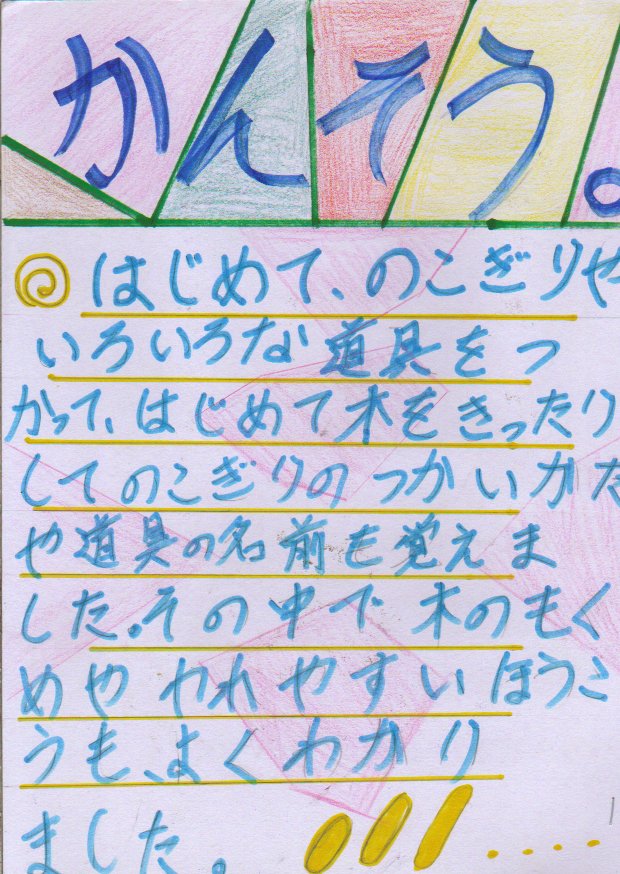 かんそう。
はじめて、のこぎりや
いろいろな道具をつ
かって、はじめて木をきったり
してのこぎりのつかいかた
や道具の名前も覚えま
した。その中で木のもく
めやわれやすいほうこ
うも、よくわかり
ました。